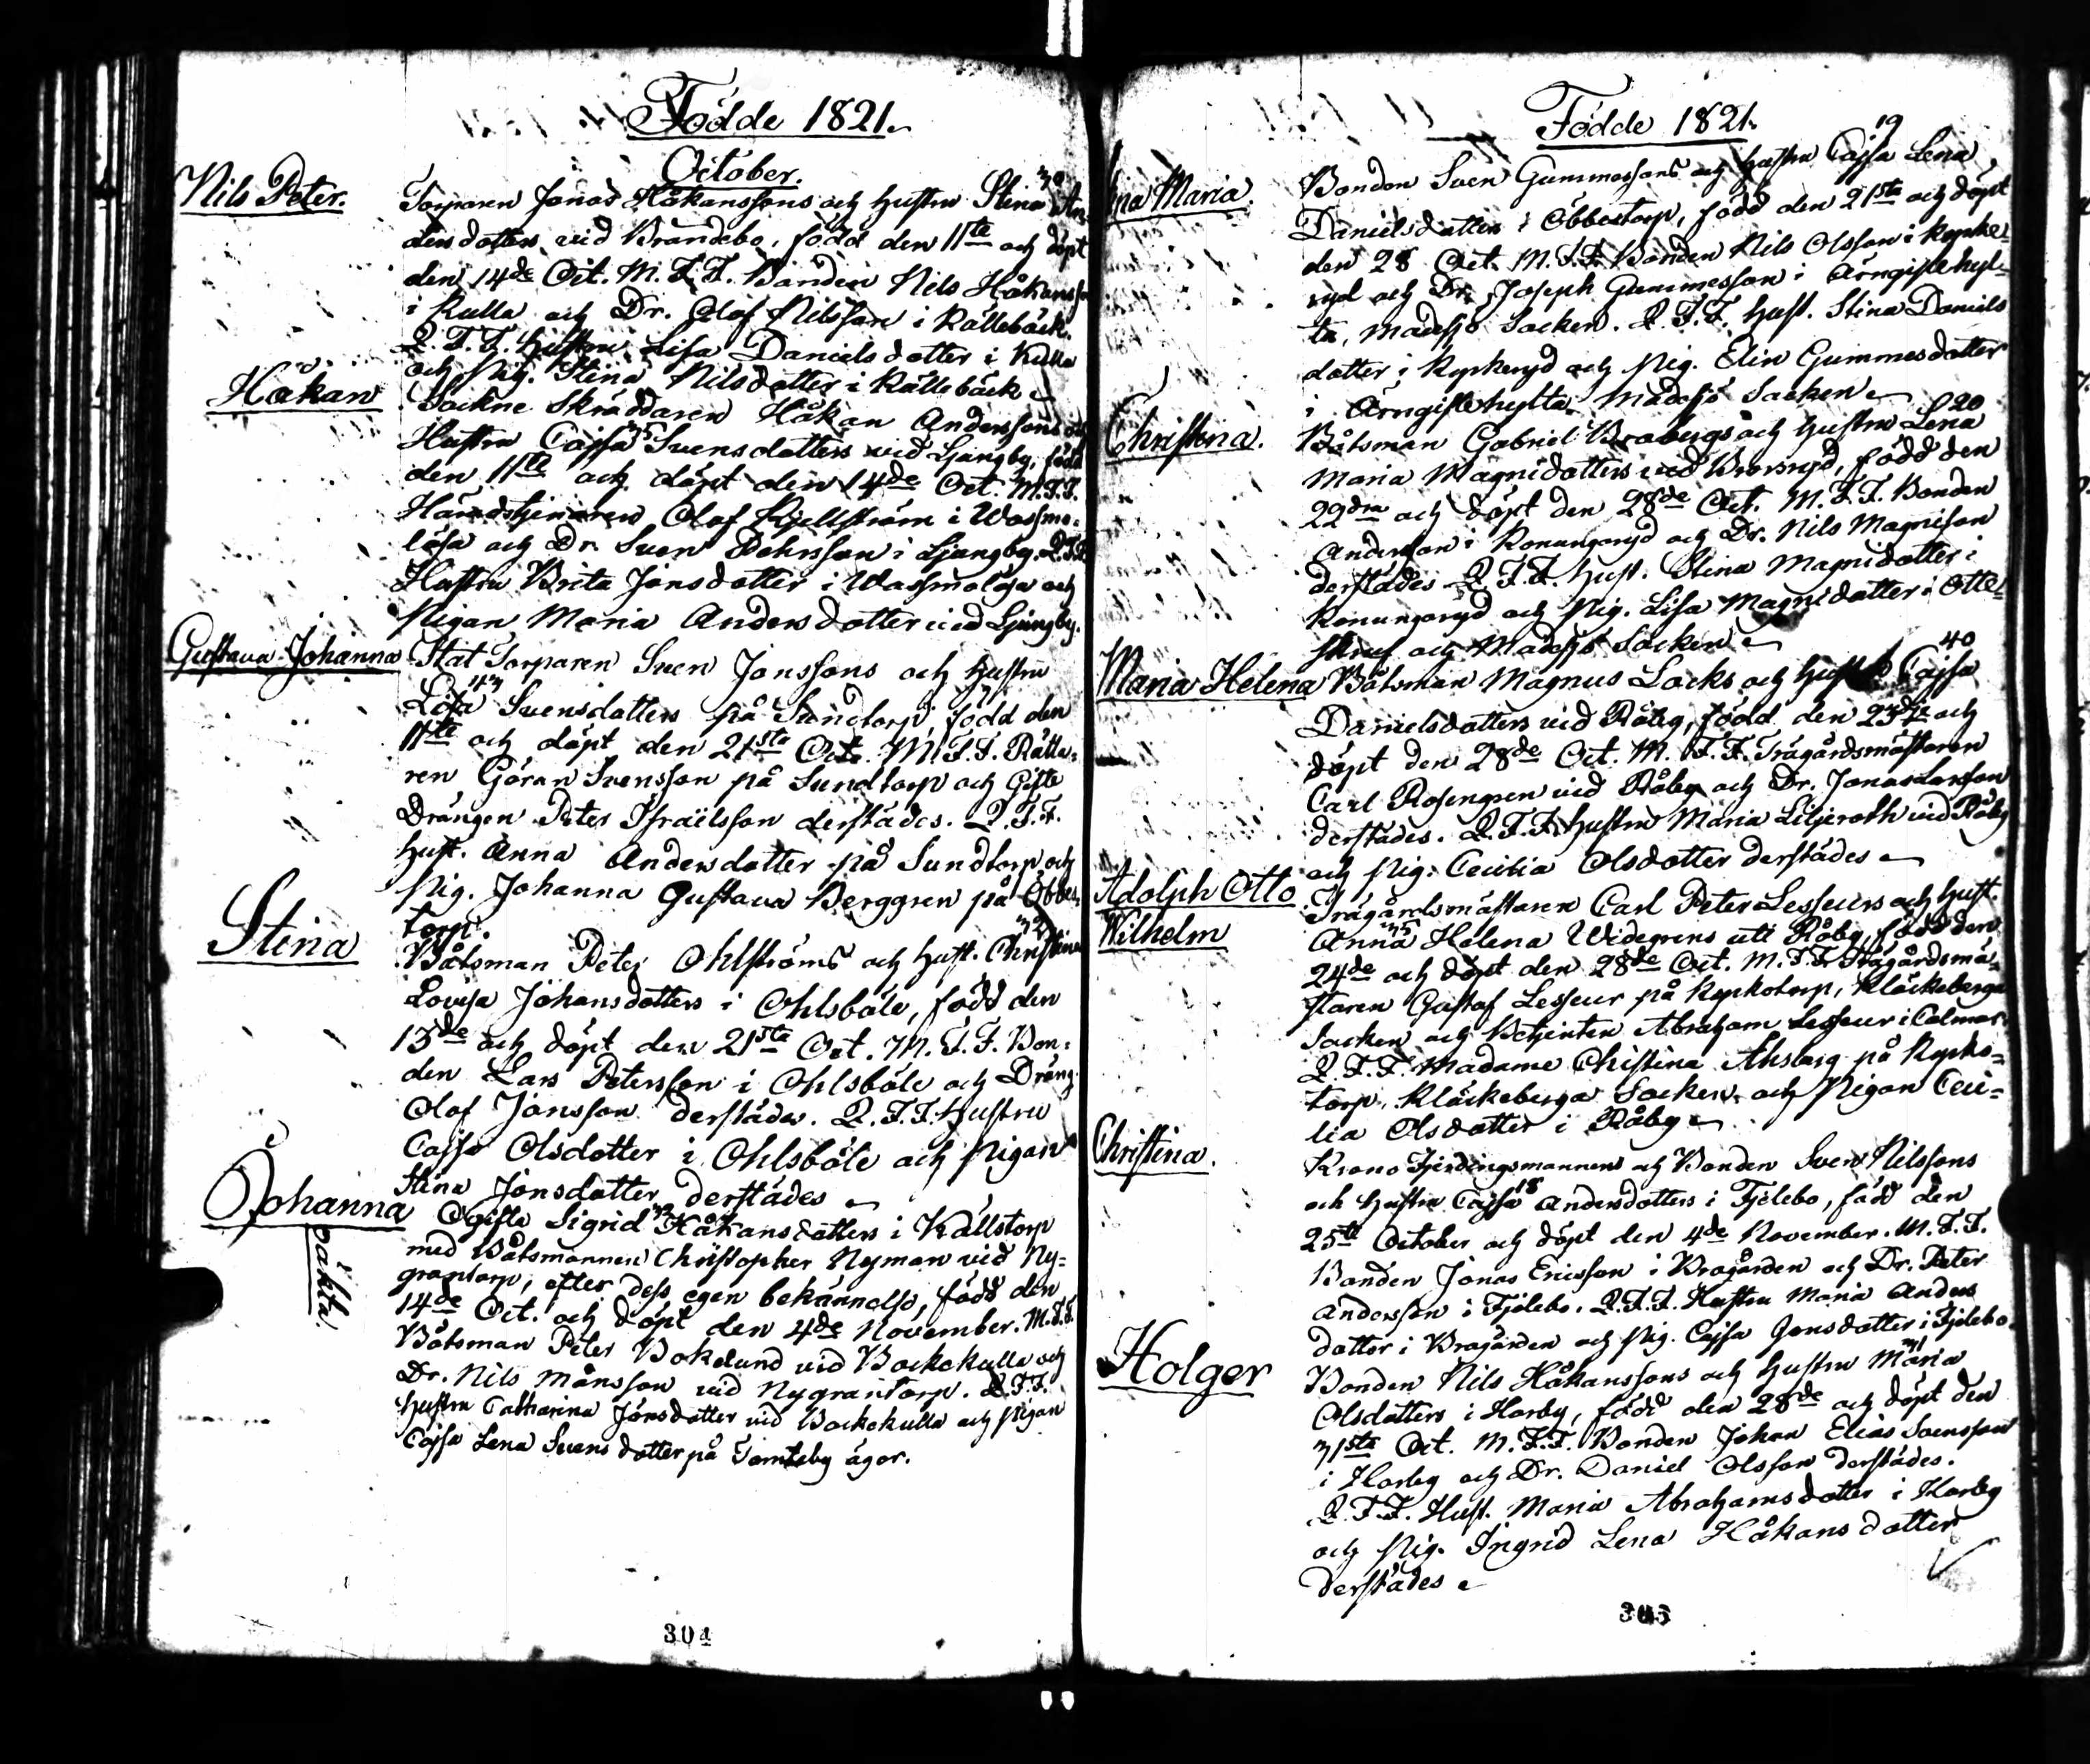 Födde 1821.
October.
Nils Peter.
30
Torparen Jonas Håkanssons och hustru Stina An-
dersdotters vid Brandebo, född den 11te och döpt
den 14de Oct. M. F. F. Bonden Nils Håkansson
i Kulla och Dr. Olof Nilsson i Källebäck.
Q. F. F. hustru Lisa Daniels dotter i Kulla
och Pig. Stina Nilsdotter i Källebäck
Håkan
Sockne Skräddaren Håkan Anderssons och
35
Hustru Cajsa Svensdotters vid Ljungby, född
den 11te och döpt den 14de Oct. M. F. F.
Häradstjenaren Olof Kjellström i Wassmo-
lösa och Dr. Sven Pehrsson i Ljungby. Q. F. F.
Hustru Brita Jonsdotter i Wassmolösa och
Pigan Maria Anders dotter vid Ljungby.
Gustava Johanna
Stat Torparen Sven Jonssons och hustru
43
Lisa Svensdotters på Sundtorp, född den
11te och döpt den 21sta Oct. M. F. F. Rätta-
ren Göran Svensson på Sundtorp och Gifte
Drängen Peter Israelsson derstädes. Q. F. F.
Hust. Anna Andersdotter på Sundtorp och
Pig. Johanna Gustava Berggren på Öbbes-
torp.
Stina
32
Båtsman Peter Ohlströms och hust. Christina
Lovisa Johansdotters i Ohlsböle, född den
13de och döpt den 21sta Oct. M. F. F. Bon-
den Lars Petersson i Ohlsböle och Dräng
Olof Jonsson derstädes. Q. F. F. hustru
Cajsa Olsdotter i Ohlsböle och Pigan
Stina Jonsdotter derstädes
Johanna
oäkta
32
Ogifta Sigrid Håkansdotters i Källstorp
med Båtsmannen Christopher Nyman vid Ny-
grantorp, efter dess egen bekännelse, född den
14de Oct. och döpt den 4de November. M. F. F.
Båtsman Peter Bokelund vid Bockekulla och
Dr. Nils Månsson vid Nygrantorp. Q. F. F.
hustru Catharina Jonsdotter vid Bockekulla och Pigan
Cajsa Lena Svens dotter på Tomteby ägor.
304
Födde 1821.
19
Maria.
Bonden Sven Gummessons och hustru Cajsa Lena
Danielsdotters i Öbbestorp, född den 21sta och döpt
den 28 Oct. M. F. F. Bonden Nils Olsson i Ryrke-
ryd och Dr. Joseph Gummesson i Örngistehyl-
ta, Madesjö Socken. Q. F. F. Hust. Stina Daniels
dotter i Ryrkeryd och Pig. Elin Gummesdotter
i Örngistehylta, Madesjö Socken
Christina.
20
Båtsman Gabriel Brobergs och hustru Lena
Maria Magnidotters vid, född den
22dra och döpt den 28de Oct. M. F. F. Bonden
Andersson i Konungaryd och Dr. Nils Magnison
derstädes Q. F. F. hust. Stina Magnidotter i
Konungaryd och Pig. Lisa Magnidotter i Otte-
och Madesjö Socken
Maria Helena
40
Båtsman Magnus Locks och hustru Cajsa
Danielsdotters vid Råby, född den 23dje och
döpt den 28de Oct. M. F. F. Trägårdsmästaren
Carl Rosengren vid Råby och Dr. Jonas Larsson
derstädes. Q. F. F. hustru Maria Liljeroth vid Råby
och Pig. Cecilia Olsdotter derstädes
Adolph Otto
Wilhelm
Trägårdsmästaren Carl Peter Lesseurs och hust.
35
Anna Helena Widegrens uti Råby, född den
24de och döpt den 28de Oct. M. F. F. Trägårdsmä-
staren Gustaf Lesseur på Ryrkotorp, Kläckeberga
Socken och Betjenten Abraham Lesseur i Calmar.
Q. F. F. Madame Christina Ahsberg på Ryrko-
torp, Kläckeberga Socken, och Pigan Ceci-
lia Olsdotter i Råby
Christina.
Krono Fjerdingsmannens och Bonden Sven Nilssons
18
och hustru Cajsa Andersdotters i Fjelebo, född den
25te October och döpt den 4de November. M. F. F.
Bonden Jonas Ericsson i Bragården och Dr. Peter
Andersson i Fjelebo. Q. F. F. Hustru Maria Anders
dotter i Bragården och Pig. Cajsa Jonsdotter i Fjelebo.
Holger
31
Bonden Nils Håkanssons och hustru Maria
Olsdotters i Harby, född den 28de och döpt den
31sta Oct. M. F. F. Bonden Johan Elias Svensson
i Harby och Dr. Daniel Olsson derstädes.
Q. F. F. Hust. Maria Abrahams dotter i Harby
och Pig. Ingrid Lena Håkans dotter
derstädes
305